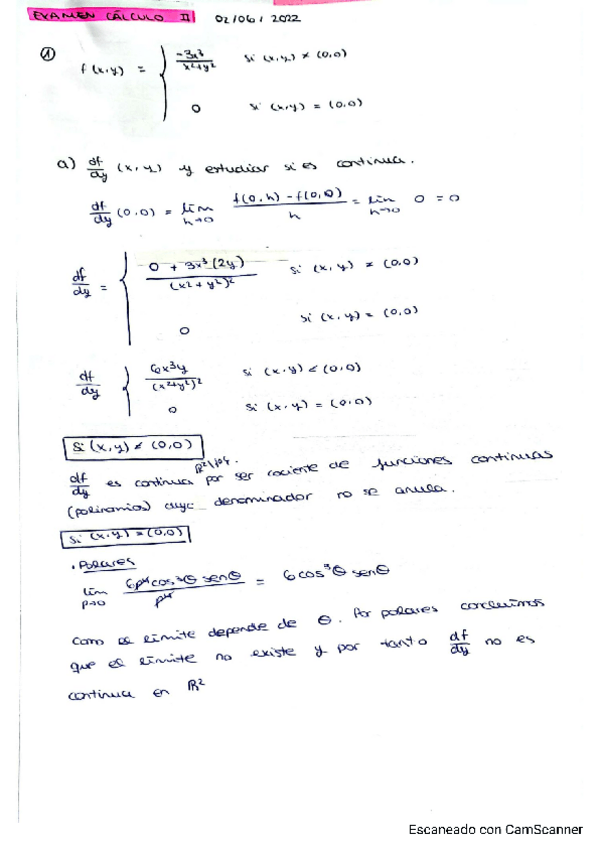 EXAMEN CÁLCULO II 02/06/2022
① f(x,y) = { -3x³/(x²+y²) si (x,y) ≠ (0,0)
0 si (x,y) = (0,0)
a) df/dy (x,y) y estudiar si es continua.
df/dy (0,0) = lim h→0 (f(0,h) - f(0,0))/h = lim h→0 0 = 0
df/dy = { (0 + 3x³(2y))/(x²+y²)² si (x,y) ≠ (0,0)
0 si (x,y) = (0,0)
df/dy { 6x³y/(x²+y²)² si (x,y) ≠ (0,0)
0 si (x,y) = (0,0)
Si (x,y) ≠ (0,0)
df/dy es continua por ser cociente de funciones continuas
(polinomios) cuyo denominador no se anula.
Si (x,y) = (0,0)
. Polares
lim ρ→0 6ρ⁴cos³θ senθ/ρ⁴ = 6cos³θ senθ
Como el límite depende de θ. Por polares concluimos
que el límite no existe y por tanto df/dy no es
continua en ℝ²
Escaneado con CamScanner